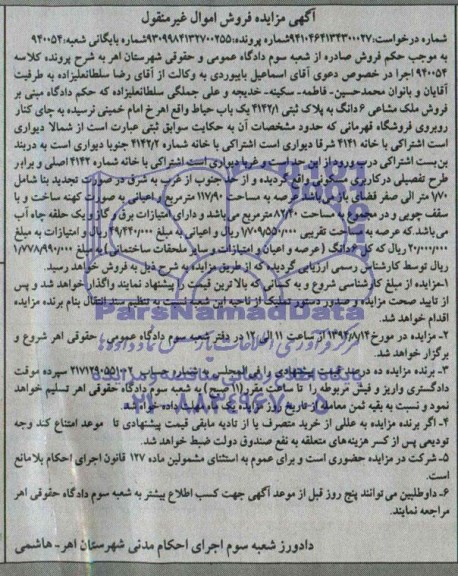 آگهی مزایده فروش اموال غیرمنقول
شماره درخواست: ۹۴۱۰۴۶۴۱۳۴۳۰۰۰۲۷ شماره پرونده: ۹۳۰۹۹۸۴۱۳۲۷۰۰۲۵۵ شماره بایگانی شعبه: ۹۴۰۰۵۴
به موجب حکم فروش صادره از شعبه سوم دادگاه عمومی و حقوقی شهرستان اهر به شرح پرونده کلاسه
۹۴۰۰۵۴ اجرا در خصوص دعوی آقای اسماعیل بابیوردی به وکالت از آقای رضا سلطانعلیزاده به طرفیت
آقایان و بانوان محمدحسین- فاطمه- سکینه- خدیجه و علی جملگی سلطانعلیزاده که حکم دادگاه مبنی بر
فروش ملک مشاعی ۶ دانگ به پلاک ثبتی ۴۱۴۲/۱ یک باب حیاط واقع اهر خ امام خمینی نرسیده به چای کنار
روبروی فروشگاه قهرمانی که حدود مشخصات آن به حکایت سوابق ثبتی عبارت است از شمالا دیواری
است اشتراکی با خانه ۴۱۴۱ شرقا دیواری است اشتراکی با خانه شماره ۴۱۴۲/۲ جنوبا دیواری است به دربند
بن بست اشتراکی درب ورود از این حد است و غربا دیواری است اشتراکی با خانه شماره ۴۱۴۲ اصلی و برابر
طرح تفصیلی درکاربری مسکونی واقع گردیده و از حد جنوب از غرب به شرق در صورت تجدید بنا شامل
۱/۷۰ متر الی صفر فضای باز می باشد عرصه به مساحت ۱۱۷/۹۰ مترمربع و اعیانی به صورت کهنه ساخت و با
سقف چوبی و در مجموع به مساحت ۸۲/۴۰ مترمربع می باشد و دارای امتیازات برق و گاز و یک حلقه چاه آب
می باشد. که عرصه به مساحت تقریبی ۱/۷۰۹/۵۵۰/۰۰۰ ریال و اعیانی به مبلغ ۴۹/۴۴۰/۰۰۰ ریال و امتیازات به مبلغ
۲۰/۰۰۰/۰۰۰ ریال که کل ۶ دانگ (عرصه و اعیان و امتیازات و سایر ملحقات ساختمانی) به مبلغ ۱/۷۷۸/۹۹۰/۰۰۰
ریال توسط کارشناس رسمی ارزیابی گردیده که از طریق مزایده به شرح ذیل به فروش خواهد رسید.
۱- مزایده از مبلغ کارشناسی شروع و به کسانی که بالاترین قیمت را پیشنهاد نمایند واگذار خواهد شد و پس
از تایید صحت مزایده و صدور دستور تملیک از ناحیه این شعبه نسبت به تنظیم سند انتقال بنام برنده مزایده
اقدام خواهد شد.
۲- مزایده در مورخ ۱۳۹۴/۸/۱۴ از ساعت ۱۱ الی ۱۲ در دفتر شعبه سوم دادگاه عمومی حقوقی اهر شروع و
برگزار خواهد شد.
۳- برنده مزایده ده درصد قیمت پیشنهادی را فی المجلس به شماره حساب ۲۱۷۱۲۹۰۵۵۱۰۰۲ سپرده موقت
دادگستری واریز و فیش مربوطه را تا ساعت مقرر (۱۱ صبح) به شعبه سوم دادگاه حقوقی اهر تسلیم خواهد
نمود و نسبت به بقیه ثمن معامله از تاریخ روز مزایده یک ماه مهلت داده خواهد شد.
۴- اگر برنده مزایده به عللی از خرید متصرف یا از تادیه مابقی قیمت پیشنهادی تا موعد امتناع کند وجه
تودیعی پس از کسر هزینه های متعلقه به نفع صندوق دولت ضبط خواهد شد.
۵- شرکت در مزایده حضوری است و برای عموم به استثنای مشمولین ماده ۱۲۷ قانون اجرای احکام بلامانع
است.
۶- داوطلبین می توانند پنج روز قبل از موعد آگهی جهت کسب اطلاع بیشتر به شعبه سوم دادگاه حقوقی اهر
مراجعه نمایند.
دادورز شعبه سوم اجرای احکام مدنی شهرستان اهر- هاشمی
ParsNamadData
۰۲۱-۸۸۳۴۹۶۷۰-۵